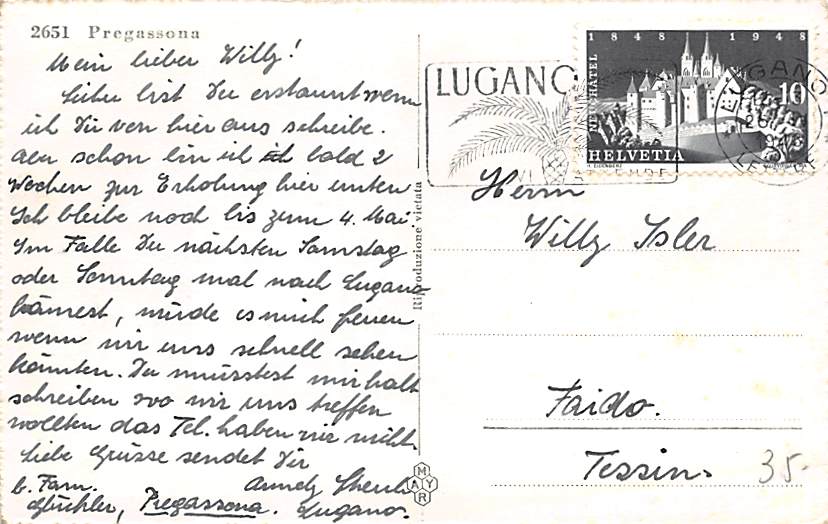 2651 Pregassona
Mein lieber Willy!
Sicher bist Du erstaunt wenn
ich Dir von hier aus schreibe.
Aber schon bin ich bald 2
Wochen zur Erholung hier unten.
Ich bleibe noch bis zum 4. Mai.
Im Falle Du nächsten Samstag
oder Sonntag mal nach Lugano
kämest, würde es mich freuen
wenn wir uns schnell sehen
könnten. Du müsstest mir halt
schreiben wo wir uns treffen
wollten das Tel. haben wir nicht.
Liebe Grüsse sendet Dir
b. Fam. Annely
Pregassona. Lugano.
Riproduzione vietata
MAYR
LUGANO
1848 1948
NEUCHÂTEL
10
HELVETIA
LUGANO
Herrn
Willy Isler
Faido.
Tessin.
35-